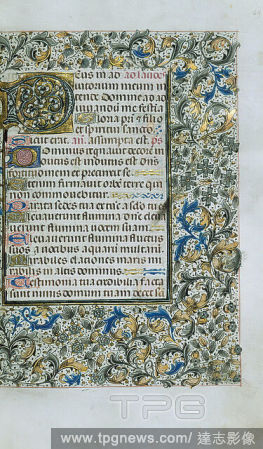 Deus in ad
utorium meum in
tende Domine ad ad
iuuandum me festina
Gloria pri et filio
et spiritui sancto
Sicut erat an Assumpta est ps
Dominus regnauit decore in
dutus est indutus est dns
fortitudinem et precinxit se
Etenim firmauit orbem terre qui
non commouebitur
Parata sedes tua
Eleuauerunt flumina dne eleua
uerunt flumina uocem suam
Eleuauerunt flumina fluctus
suos a uocibus aquarum multarum
Mirabiles elationes maris mi
rabilis in altis dominus
Testimonia tua credibilia facta
sunt nimis domum tuam decet
TPG
www.tpgnews.com/達志影像